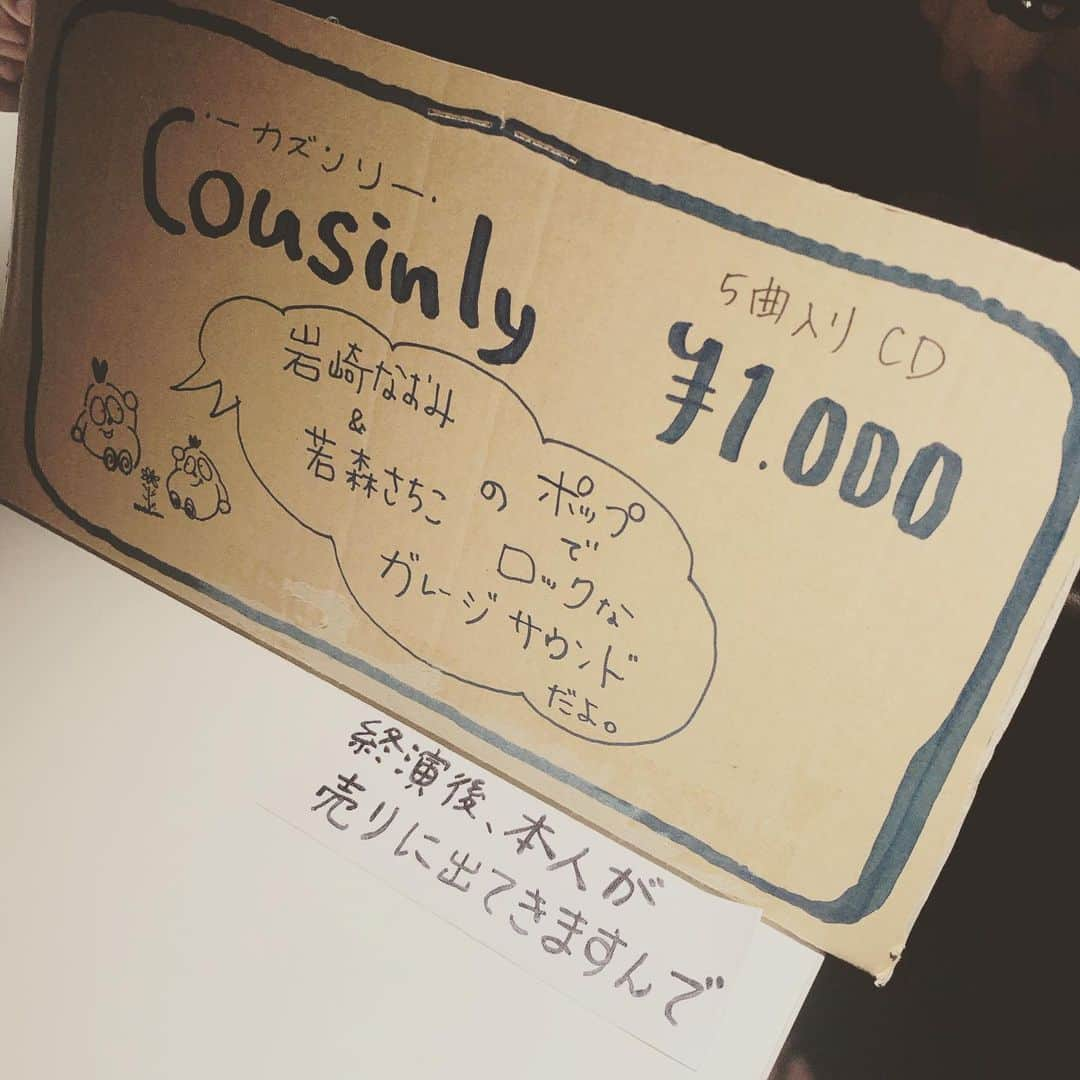 －カズンリー・
Cousinly
5曲入り CD
¥1.000
岩崎なおみ
&
若森さちこ の ポップ
で
ロックな
ガレージサウンド
だよ。
終演後、本人が
売りに出てきますんで